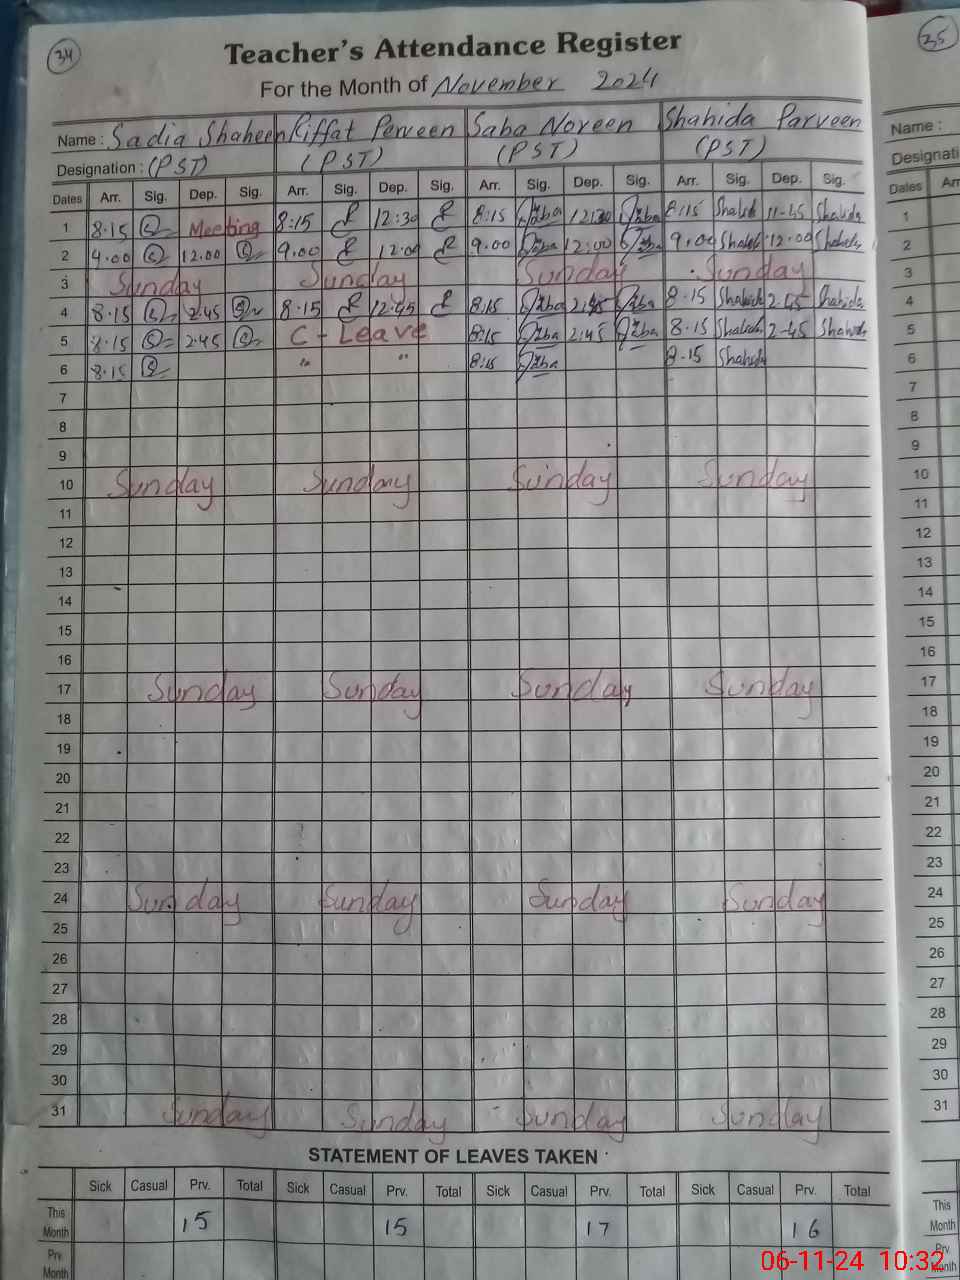 34
Teacher's Attendance Register
35
For the Month of November 2024
Name : Sadia Shaheen Riffat Perveen Saba Noreen Shahida Parveen
Name :
Designation : (PST) (PST) (PST) (PST)
Designati
Dates Arr. Sig. Dep. Sig. Arr. Sig. Dep. Sig. Arr. Sig. Dep. Sig. Arr. Sig. Dep. Sig.
Dates Arr
1 8.15 Meeting 8:15 12:30 8:15 12:30 8:15 Shahida 11-45 Shahida
1
2 9.00 12.00 9.00 12:00 9.00 12:00 9.00 Shahida 12.00 Shahida
2
3 Sunday Sunday Sunday Sunday
3
4 8.15 2.45 8.15 12:45 8:15 2:45 8.15 Shahida 2.45 Shahida
4
5 8.15 2.45 C - Leave 8:15 2:45 8.15 Shahida 2-45 Shahida
5
6 8.15 " " 8:15 8.15 Shahida
6
7
7
8
8
9
9
10 Sunday Sunday Sunday Sunday
10
11
11
12
12
13
13
14
14
15
15
16
16
17 Sunday Sunday Sunday Sunday
17
18
18
19
19
20
20
21
21
22
22
23
23
24 Sunday Sunday Sunday Sunday
24
25
25
26
26
27
27
28
28
29
29
30
30
31 Sunday Sunday Sunday Sunday
31
STATEMENT OF LEAVES TAKEN
Sick Casual Prv. Total Sick Casual Prv. Total Sick Casual Prv. Total Sick Casual Prv. Total
This Month 15 15 17 16
This Month
Prv. Month
Prv. Month
06-11-24 10:32